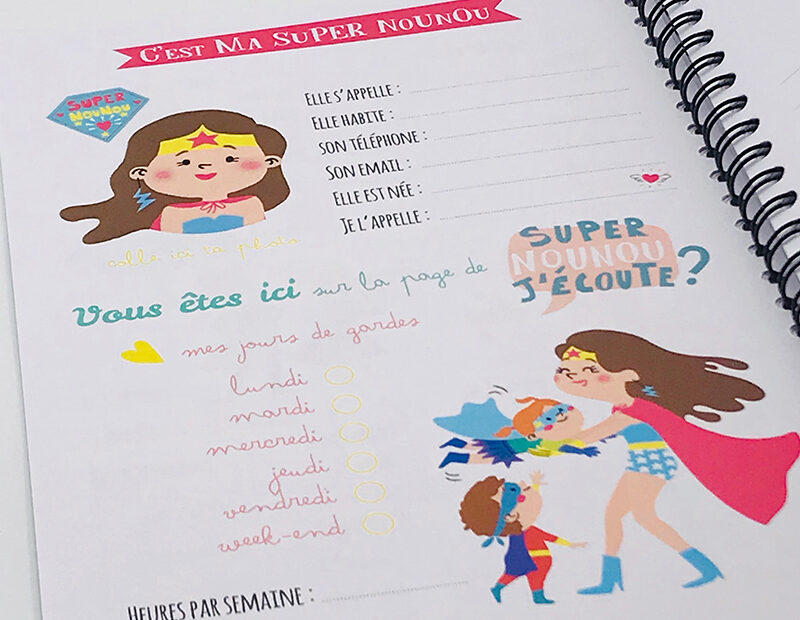 C'EST MA SUPER NOUNOU
SUPER
NOUNOU
ELLE S'APPELLE :
ELLE HABITE :
SON TÉLÉPHONE :
SON EMAIL :
ELLE EST NÉE :
JE L'APPELLE :
colle ici ta photo
Vous êtes ici sur la page de
SUPER
NOUNOU
J'ÉCOUTE ?
mes jours de gardes
lundi
mardi
mercredi
jeudi
vendredi
week-end
HEURES PAR SEMAINE :